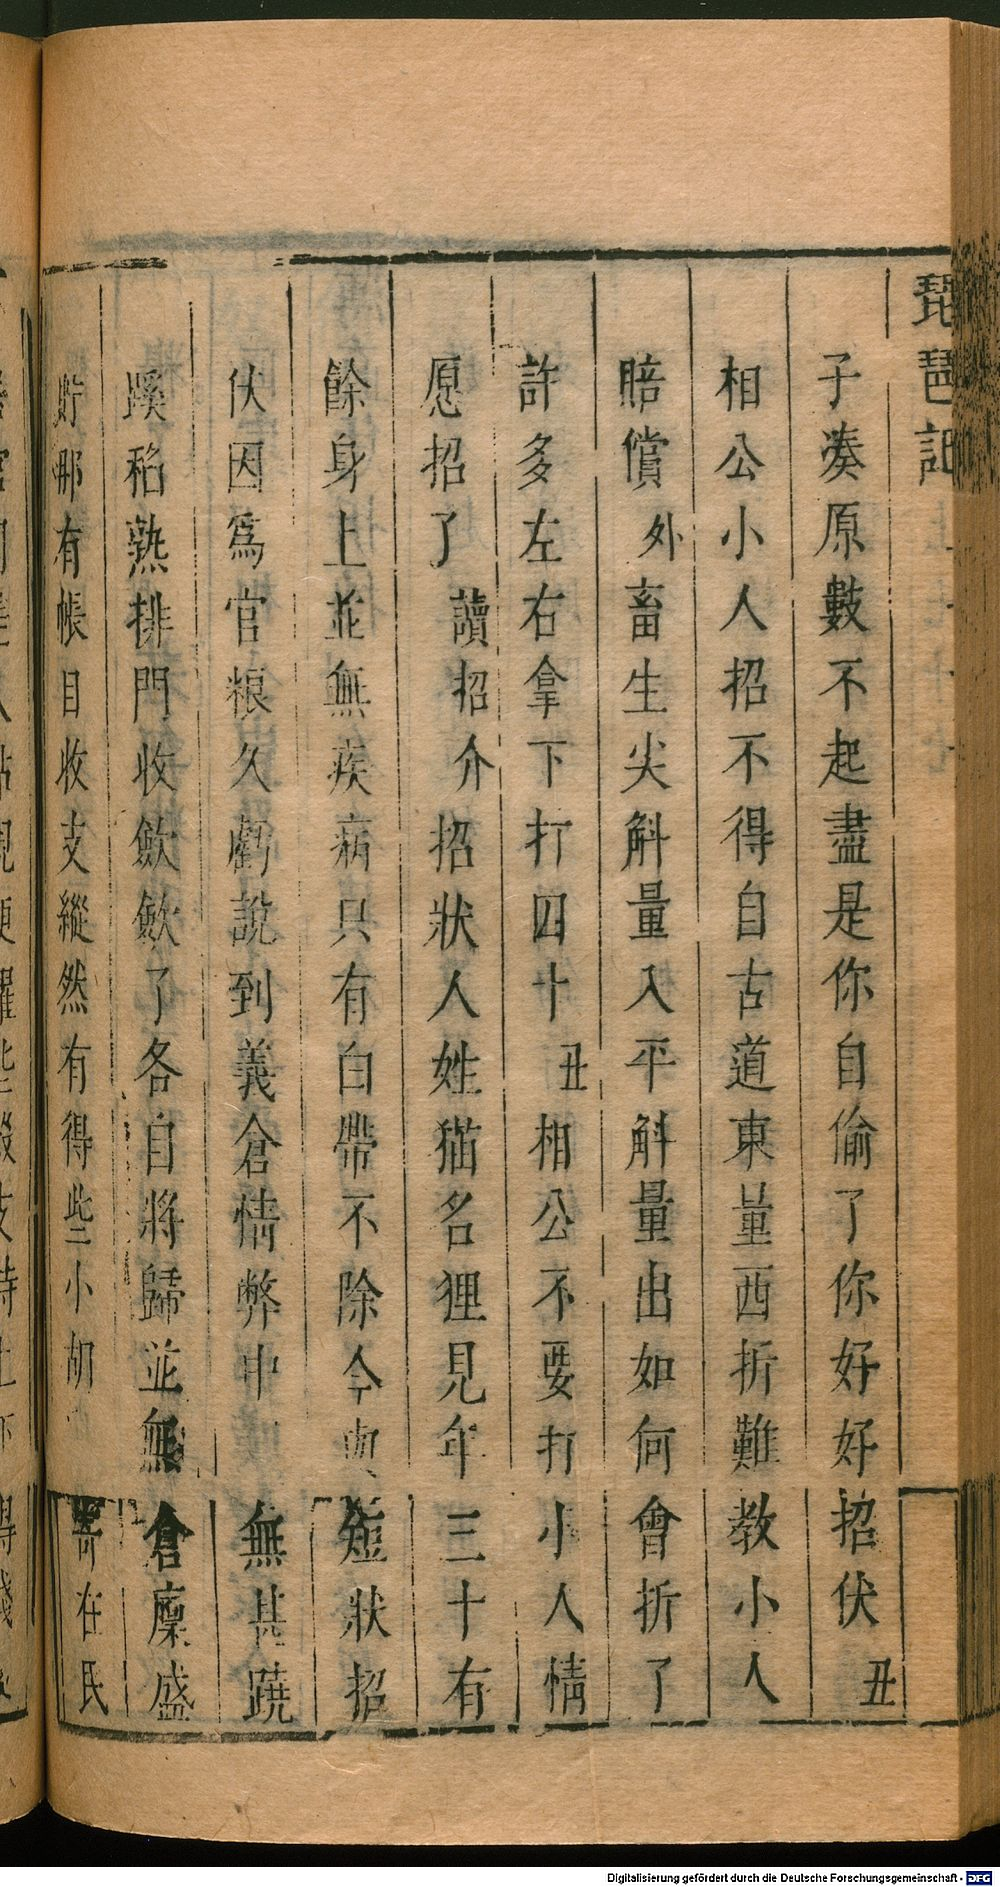 琵琶記
子湊原數不起盡是你自偷了你好好招伏丑
相公小人招不得自古道東量西折難教小人
賠償外畜生尖斛量入平斛量出如何會折了
許多左右拿下打四十丑相公不要打小人情
愿招了讀招介招狀人姓猫名狸見年三十有
餘身上並無疾病只有白帶不除今與短狀招
伏因爲官粮久虧說到義倉情弊中無甚蹺
蹊稻熟排門收歛歛了各自將歸並無倉廩盛
貯那有帳目收支縱然有得些小胡寄在民
Digitalisierung gefördert durch die Deutsche Forschungsgemeinschaft - DFG